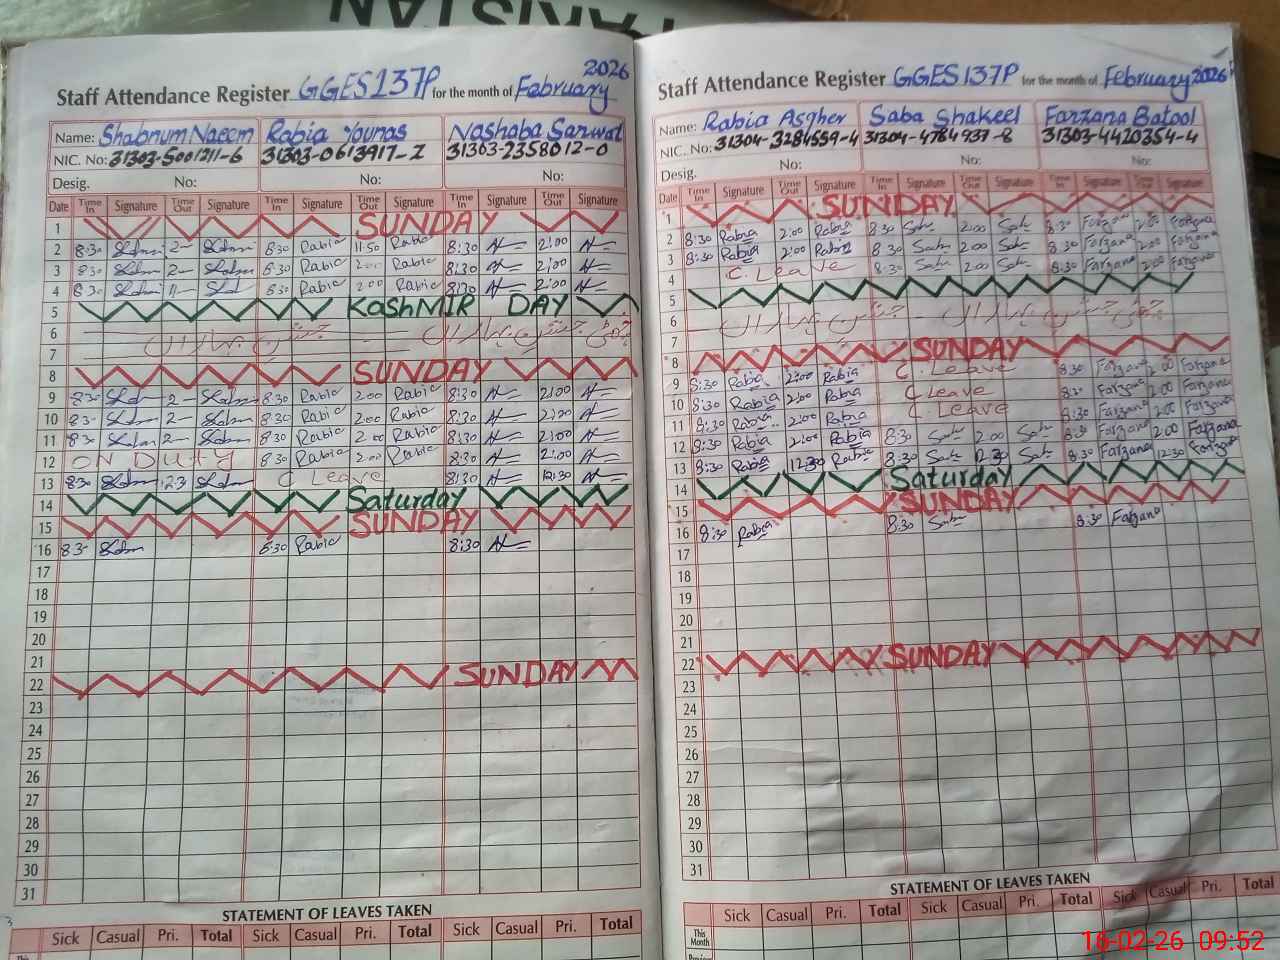 PAKISTAN
Staff Attendance Register GGES 137P for the month of February 2026
Name: Shabnum Naeem Rabia Younas Nashaba Sarwat
NIC. No: 31303-5001211-6 31303-0613917-2 31303-2358012-0
Desig. No: No:
Date Time In Signature Time Out Signature Time In Signature Time Out Signature Time In Signature Time Out Signature
1 SUNDAY
2 8:30 2- 8:30 Rabia 11:50 Rabia 8:30 2:00
3 8:30 2- 8:30 Rabia 2:00 Rabia 8:30 2:00
4 8:30 8:30 Rabia 2:00 Rabia 8:30 2:00
5 KASHMIR DAY
6 جشن بہاراں جشن بہاراں
7
8 SUNDAY
9 8:30 2- 8:30 Rabia 2:00 Rabia 8:30 2:00
10 8:30 2- 8:30 Rabia 2:00 Rabia 8:30 2:00
11 8:30 2- 8:30 Rabia 2:00 Rabia 8:30 2:00
12 ON DUTY 8:30 Rabia 2:00 Rabia 8:30 2:00
13 8:30 C Leave 8:30 12:30
14 Saturday
15 SUNDAY
16 8:30 8:30 Rabia 8:30
17
18
19
20
21
22 SUNDAY
23
24
25
26
27
28
29
30
31
STATEMENT OF LEAVES TAKEN
Sick Casual Pri. Total Sick Casual Pri. Total Sick Casual Pri. Total
Staff Attendance Register GGES 137P for the month of February 2026
Name: Rabia Asgher Saba Shakeel Farzana Batool
NIC. No: 31304-3284559-4 31304-4784937-8 31303-4420354-4
Desig. No: No: No:
Date Time In Signature Time Out Signature Time In Signature Time Out Signature Time In Signature Time Out Signature
1 SUNDAY
2 8:30 Rabia 2:00 Rabia 8:30 Saba 2:00 Saba 8:30 Farzana 2:00 Farzana
3 8:30 Rabia 2:00 Rabia 8:30 Saba 2:00 Saba 8:30 Farzana 2:00 Farzana
4 C. Leave 8:30 Saba 2:00 Saba 8:30 Farzana 2:00 Farzana
5
6 جشن بہاراں جشن بہاراں
7
8 SUNDAY
9 8:30 Rabia 2:00 Rabia C. Leave 8:30 Farzana 2:00 Farzana
10 8:30 Rabia 2:00 Rabia C Leave 8:30 Farzana 2:00 Farzana
11 8:30 Rabia 2:00 Rabia C. Leave 8:30 Farzana 2:00 Farzana
12 8:30 Rabia 2:00 Rabia 8:30 Saba 2:00 Saba 8:30 Farzana 2:00 Farzana
13 8:30 Rabia 12:30 Rabia 8:30 Saba 12:30 Saba 8:30 Farzana 12:30 Farzana
14 Saturday
15 SUNDAY
16 8:30 Rabia 8:30 Saba 8:30 Farzana
17
18
19
20
21
22 SUNDAY
23
24
25
26
27
28
29
30
31
STATEMENT OF LEAVES TAKEN
Sick Casual Pri. Total Sick Casual Pri. Total Sick Casual Pri. Total
This Month
Previous
16-02-26 09:52